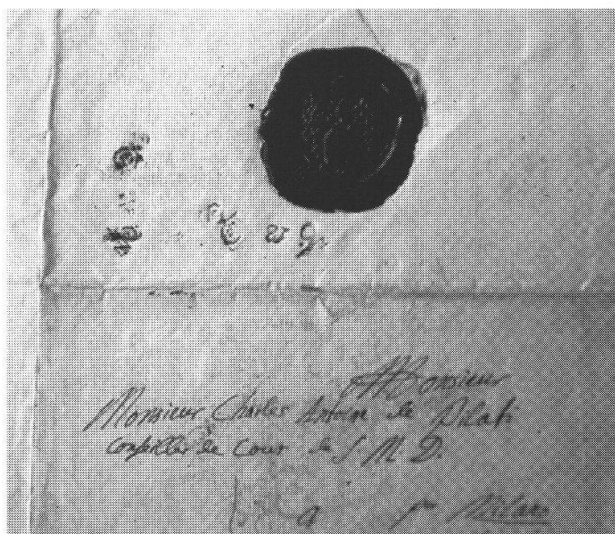 Monsieur
Monsieur Charles Antoin de Pilati
Conseiller de Cour de S M D.
a pr Milano